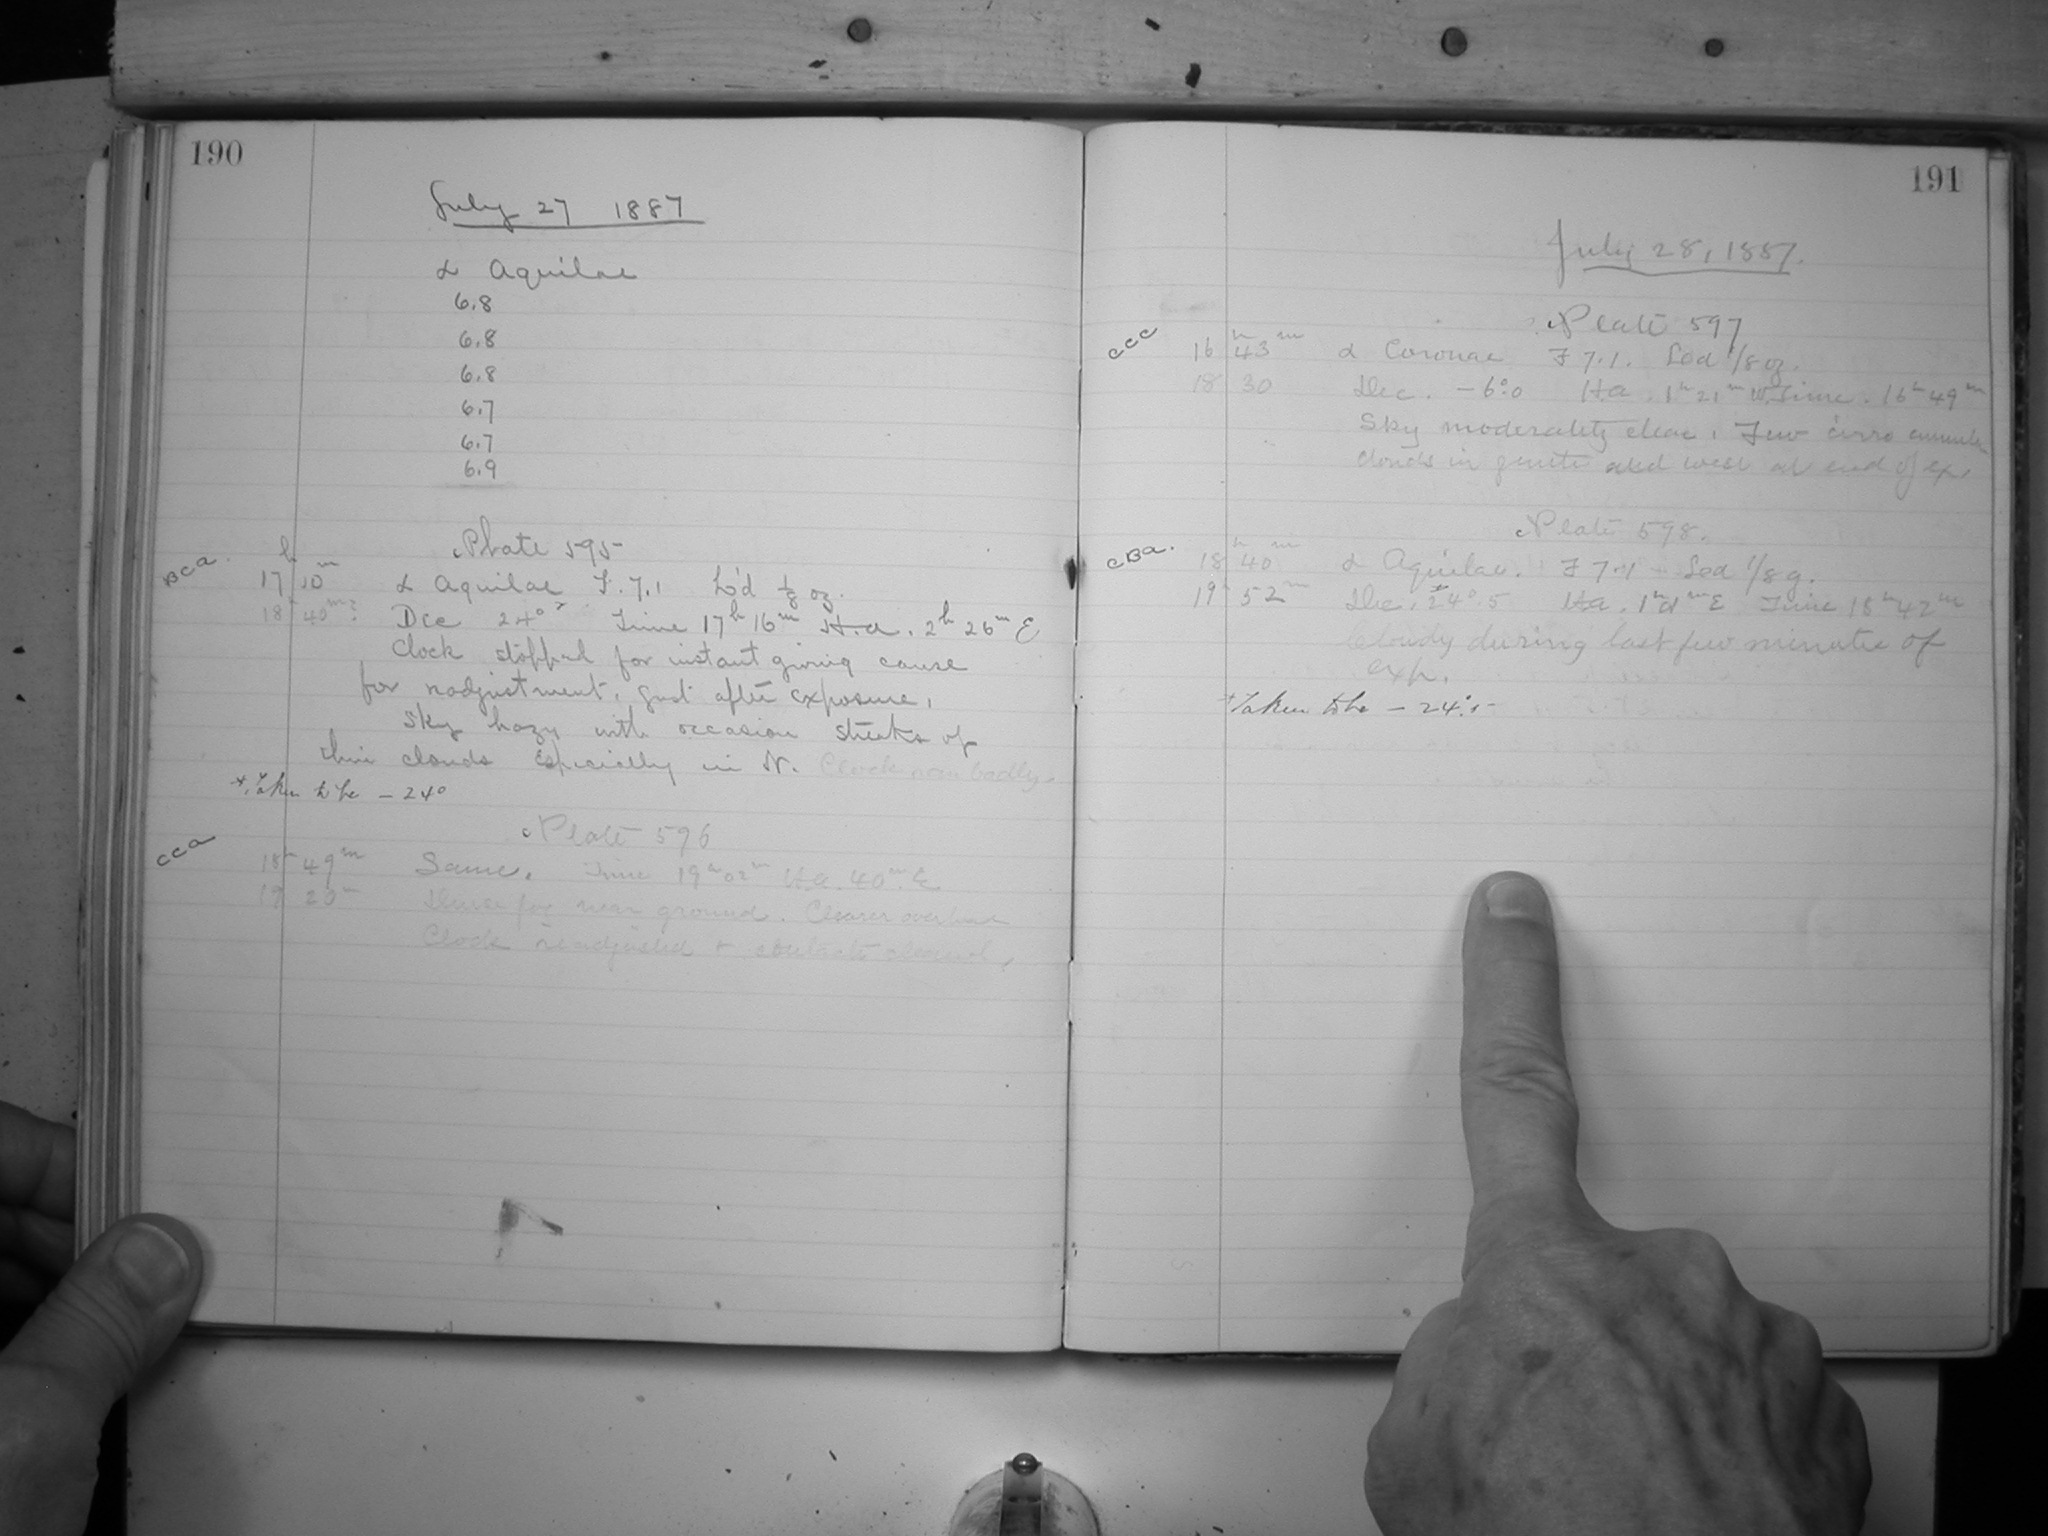 190
July 27 1887
α Aquilae
6.8
6.8
6.8
6.7
6.7
6.9
Plate 595
BCa.
17h 10m α Aquilae F. 7.1 L'd 1/8 oz.
18h 40m? Dec 24°x Time 17h 16m H.a. 2h 26m E
Clock stopped for instant giving cause
for readjustment, just after exposure,
Sky hazy with occasion streaks of
thin clouds Especially in N. Clock ran badly.
x. Taken to be - 24°
Plate 596
CCa
18h 49m Same. Time 19h 02m Ha. 40m. E
19 20m Dense fog near ground. Clearer overhead
Clock readjusted + contacts cleaned.
191
July 28, 1887.
Plate 597
CCC
16h 43m α Coronae F 7.1. Led 1/8 oz.
18 30 Dec. -6°.0 Ha. 1h 21m W. Time. 16h 49m
Sky moderately clear. Few cirro cumulus
clouds in zenith and west at end of ex.
Plate 598.
CBa.
18h 40m α Aquilae. F 7.1 - Led 1/8 g.
19h 52m Dec. x24°.5 Ha. 1h 01m E Time 18h 42m
Cloudy during last few minutes of
exp.
x Taken to be - 24°.5